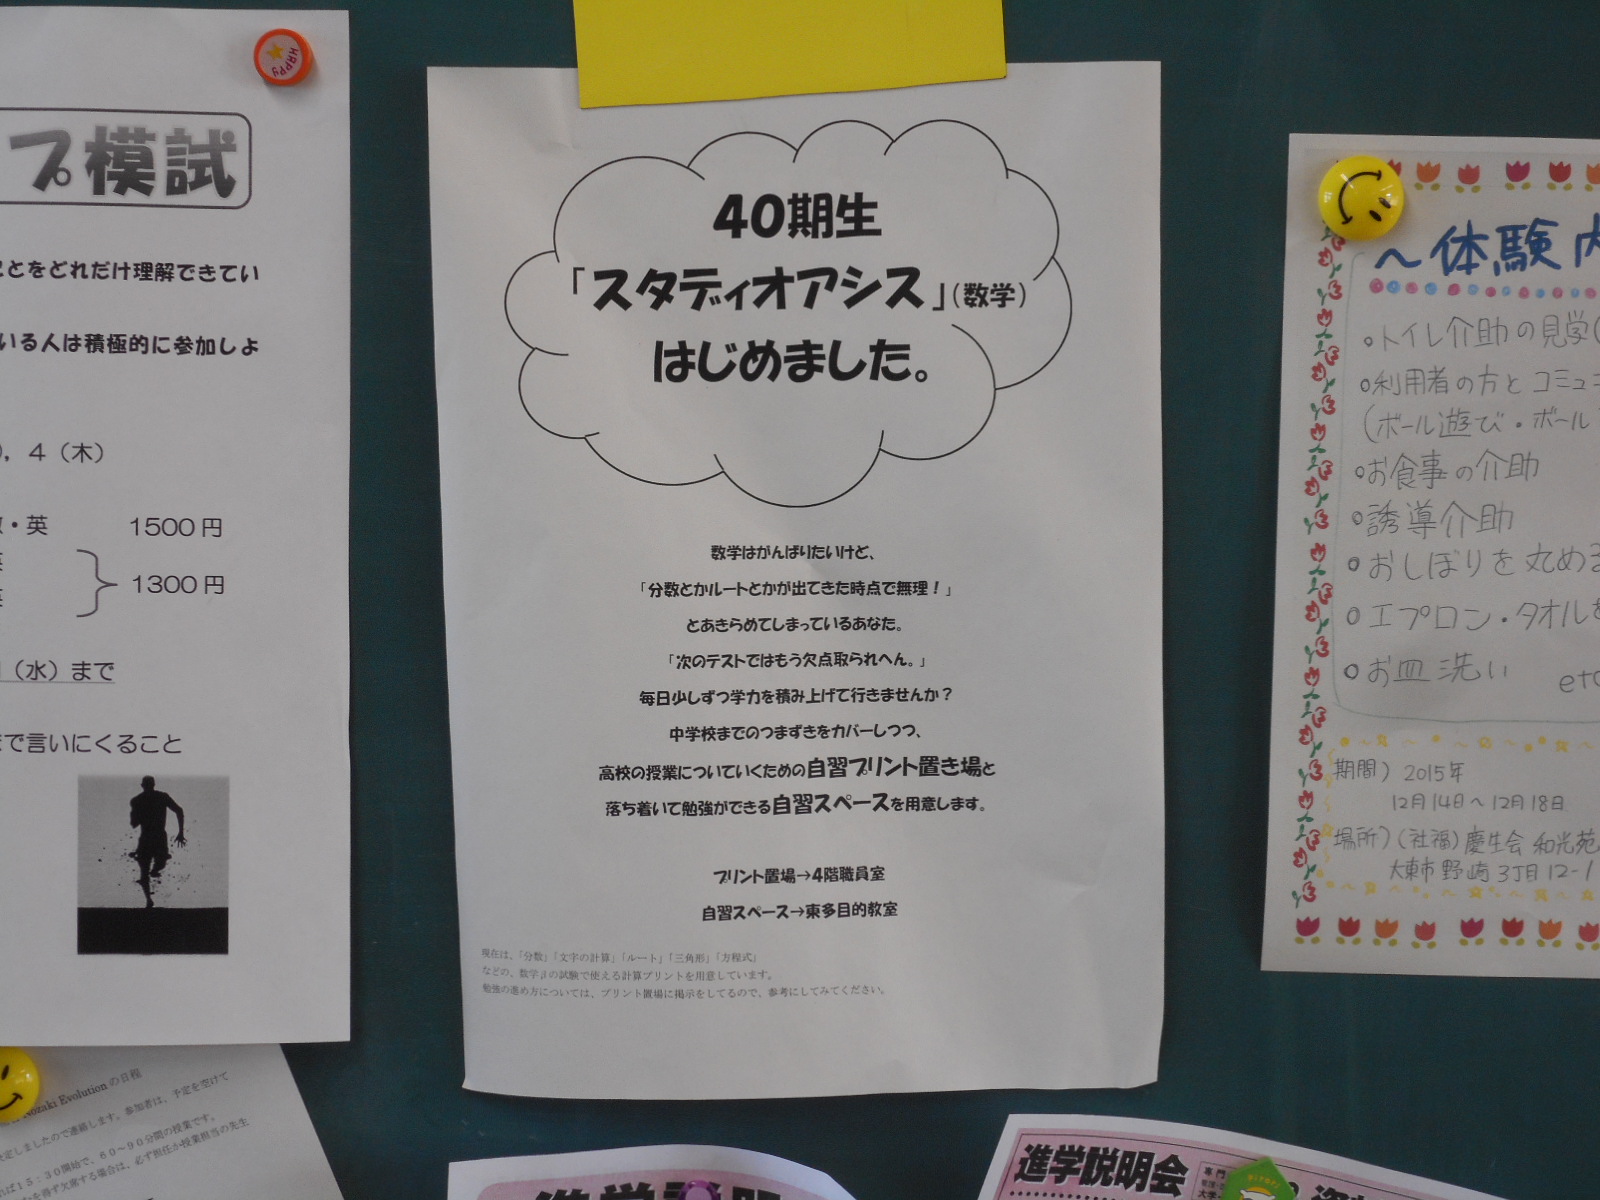 プ模試
とをどれだけ理解できてい
いる人は積極的に参加しよ
4（木）
・英 1500円
1300円
（水）まで
で言いにくること
HAPPY
Nozaki Evolutionの日程
決定しましたので連絡します。参加者は、予定を空けて
15：30開始で、80～90分間の授業です。
を得ず欠席する場合は、必ず担任か授業担当の先生
40期生
「スタディオアシス」（数学）
はじめました。
数学はがんばりたいけど、
「分数とかルートとかが出てきた時点で無理！」
とあきらめてしまっているあなた。
「次のテストではもう欠点取られへん。」
毎日少しずつ学力を積み上げて行きませんか？
中学校までのつまずきをカバーしつつ、
高校の授業についていくための自習プリント置き場と
落ち着いて勉強ができる自習スペースを用意します。
プリント置場→4階職員室
自習スペース→東多目的教室
現在は、「分数」「文字の計算」「ルート」「三角形」「方程式」
などの、数学βの試験で使える計算プリントを用意しています。
勉強の進め方については、プリント置場に掲示をしてるので、参考にしてみてください。
～体験内
・トイレ介助の見学(
○利用者の方とコミュ
(ボール遊び・ボール
○お食事の介助
○誘導介助
○おしぼりを丸める
○エプロン・タオルを
○お皿洗い etc
期間）2015年
12月14日～12月18日
場所）(社福)慶生会 和光苑
大東市野崎3丁目12-1
進学説明
進学説明会